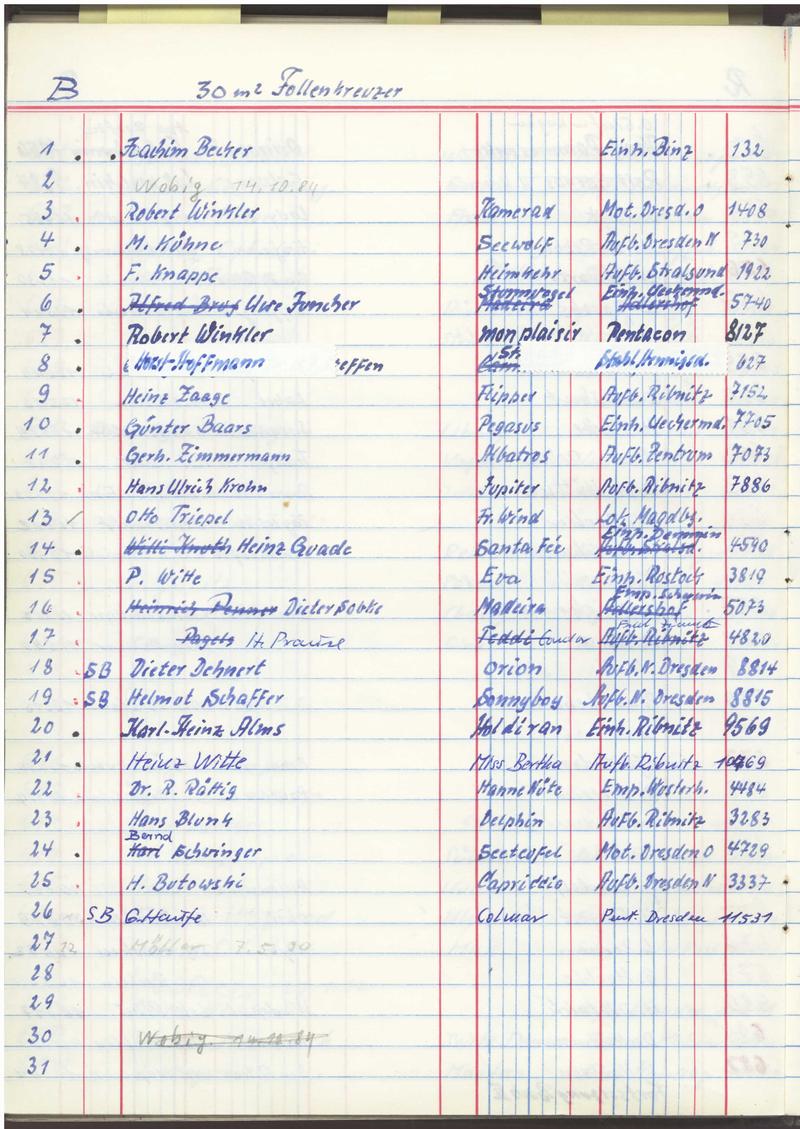 B 30 m² Follenkreuzer
1 Joachim Becker Einh. Binz 132
2 Wobig 14.10.84
3 Robert Winkler Kamerad Mot. Dresd. O 1408
4 M. Kühne Seewolf Aufb. Dresden N 730
5 F. Knappe Heimkehr Aufb. Stralsund 1922
Sturmvogel Einh. Ueckermd.
6 Alfred Brus Uwe Juncher Madeira Adlershof 5740
7 Robert Winkler mon plaisir Pentacon 8127
8 Horst Hoffmann effen St. Stahl. Hennigsd. 627
9 Heinz Zaage Flipper Aufb. Ribnitz 7152
10 Günter Baars Pegasus Einh. Ueckermd. 7705
11 Gerh. Zimmermann Albatros Aufb. Zentrum 7073
12 Hans Ulrich Krohn Jupiter Aufb. Ribnitz 7886
13 Otto Triepel Fr. Wind Lok. Magdbg.
Einh. Demmin
14 Willi Knuth Heinz Quade Santa Fée Aufb. Stralsd. 4590
15 P. Witte Eva Einh. Rostock 3819
Emp. Schwerin
16 Heinrich Penner Dieter Sobke Madeira Adlershof 5073
17 Pagels H. Prause Teddi Condor Aufb. Ribnitz 4820
18 SB Dieter Dehnert Orion Aufb. N. Dresden 8814
19 SB Helmut Schaffer Sonnyboy Aufb. N. Dresden 8815
20 Karl-Heinz Alms Holdiran Einh. Ribnitz 9569
21 Heinz Witte Miss Bertha Aufb. Ribnitz 10769
22 Dr. R. Rättig Hanne Nüte Emp. Wusterh. 4484
23 Hans Blunk Delphin Aufb. Ribnitz 3283
Bernd
24 Karl Schwinger Seeteufel Mot. Dresden O 4729
25 H. Butowski Capriccio Aufb. Dresden N 3337
26 SB G. Haufe Colmar Pent. Dresden 11531
27 Möller 7.5.90
28
29
30 Wobig 14.10.84
31